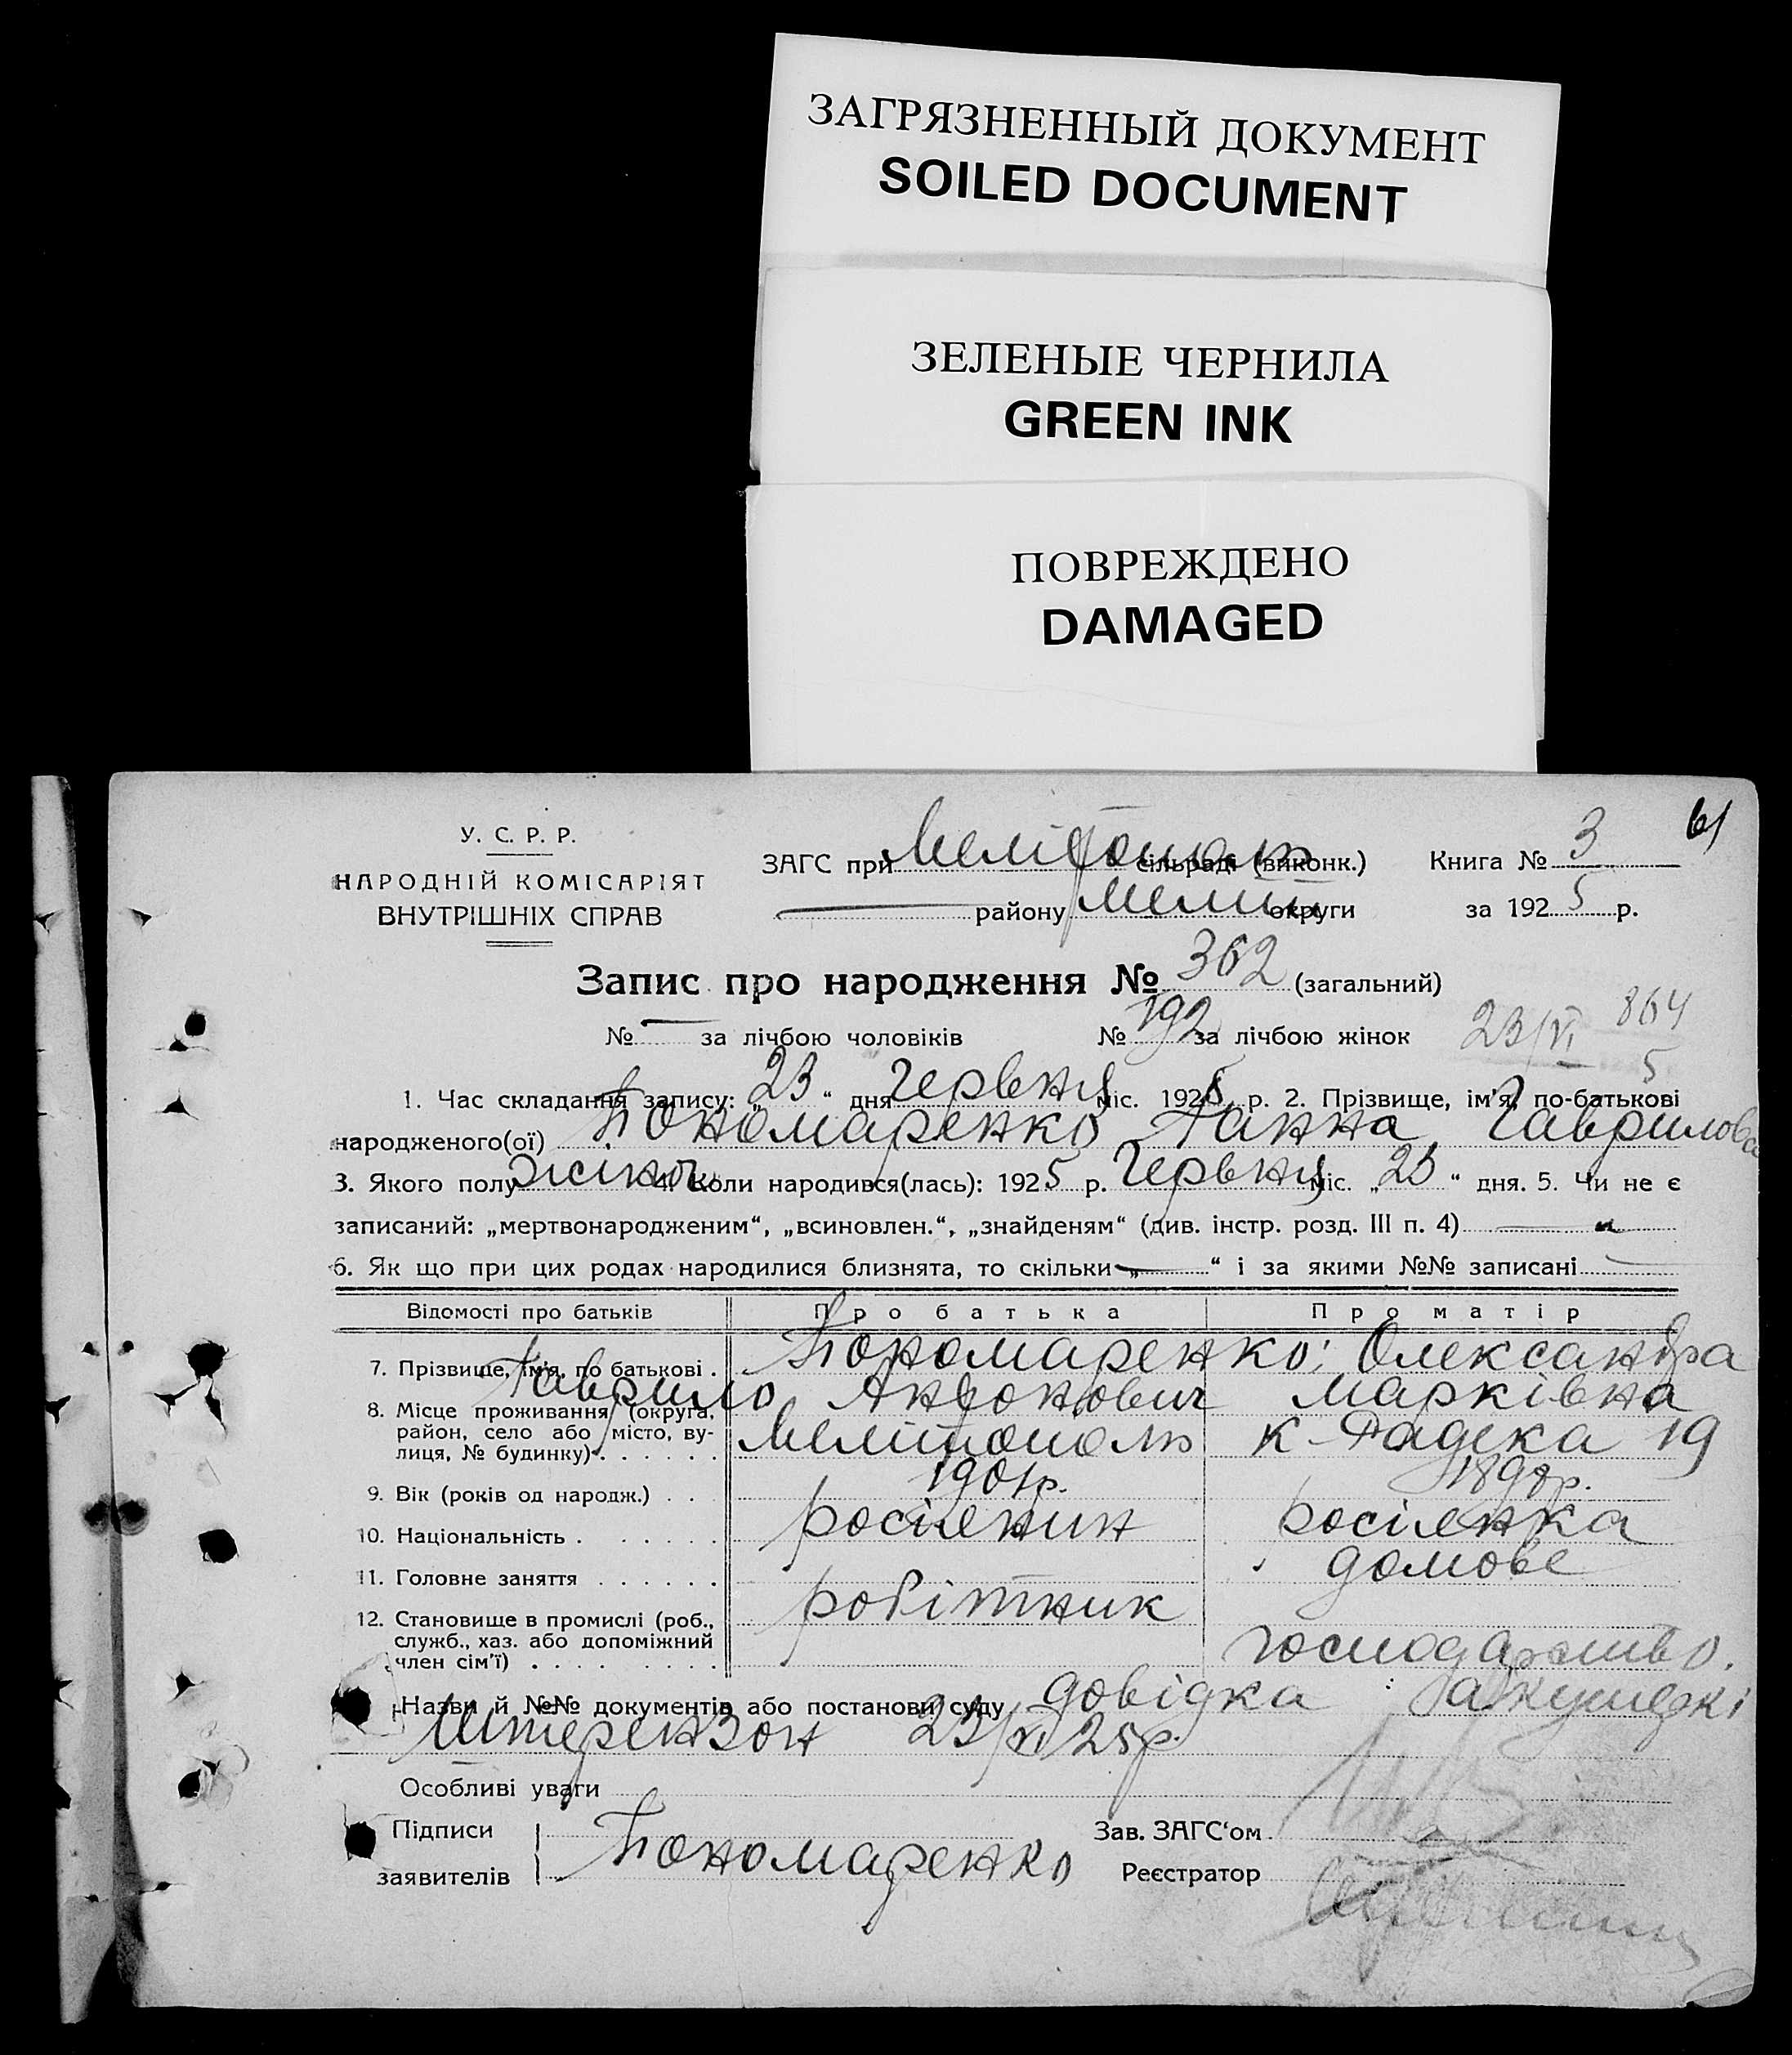 ЗАГРЯЗНЕННЫЙ ДОКУМЕНТ
SOILED DOCUMENT
ЗЕЛЕНЫЕ ЧЕРНИЛА
GREEN INK
ПОВРЕЖДЕНО
DAMAGED
61
У. С. Р. Р.
НАРОДНІЙ КОМІСАРІЯТ
ВНУТРІШНІХ СПРАВ
ЗАГС при сільраді (виконк.) Книга № 3
району Меліт округи за 1925 р.
Запис про народження № 362 (загальний)
№ — за лічбою чоловіків № 192 за лічбою жінок 23/VI 864
5
1. Час складання запису: „23“ дня червня міс. 1925 р. 2. Прізвище, ім'я, по-батькові
народженого(ої) Пономаренко Ганна Гаврилов
3. Якого полу жіноч. 4. Коли народився(лась): 1925 р. Червня міс. „23“ дня. 5. Чи не є
записаний: „мертвонародженим“, „всиновлен.“, „знайденям“ (див. інстр. розд. III п. 4) —
6. Як що при цих родах народилися близнята, то скільки „—“ і за якими №№ записані —
Відомості про батьків Про батька Про матір
7. Прізвище, ім'я, по батькові . Пономаренко: Олександра
Гаврило Антонович Марківна
8. Місце проживання (округа,
район, село або місто, ву-
лиця, № будинку) . . . . . . Мелітополь К-Радека 19
9. Вік (років од народж.) . . . 1901р. 1898р.
10. Національність . . . . . . росіянин росіянка
11. Головне заняття . . . . . . домове
12. Становище в промислі (роб.,
служб., хаз. або допоміжний
член сім'ї) . . . . . . . . . робітник господарство.
Назви й №№ документів або постанови суду довідка акушеркі
Штерензон 23/VI 25р.
Особливі уваги
Підписи
заявителів Пономаренко
Зав. ЗАГС‘ом
Реєстратор